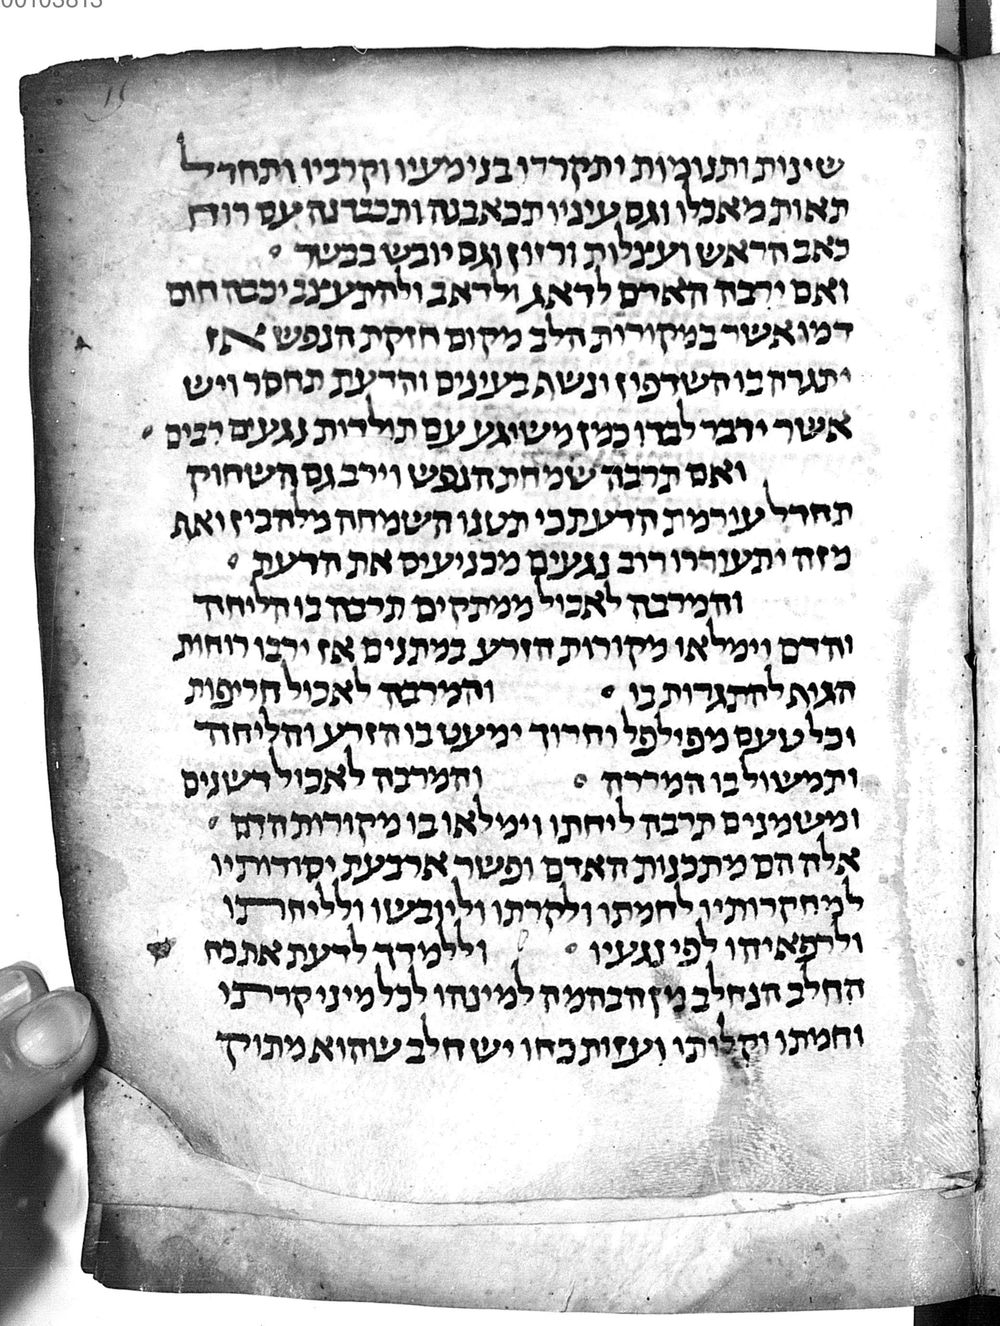 00103813
15
שינות ותנומות ויתקררו בני מעיו וקרביו ותחדל
תאות מאכלו וגם עיניו תכאבנה ותכבדנה עם רוח
כאב הראש ועצלות ורזון וגם יובש בבשר
ואם ירבה האדם לדאג ולדאב ולהתעצב יכבה חום
דמו אשר במקורות הלב מקום חזקת הנפש אז
יתגרה בו השדפון ונשת בעינים והדעת תחסר ויש
אשר ידבר לבדו כמו משוגע עם תולדות נגעים רבים
ואם תרבה שמחת הנפש וירב גם השחוק
תחדל עורמת הדעת כי תטנו השמחה מלהבין ואת
מזה יתעוררו רוב נגעים מכניעים את הדעת
והמרבה לאכול ממתקים תרבה בו הליחה
והדם וימלאו מקורות הזרע במתנים אז ירבו רוחות
הגוף להתגרות בו והמרבה לאכול חריפות
וכל טעם מפולפל וחרוך ימעט בו הזרע והליחה
ותמשול בו המררה והמרבה לאכול דשנים
ומשמנים תרבה ליחתו וימלאו בו מקורות הדם
אלה הם מתכנות האדם ופשר ארבעת יסודותיו
למחקרותיו לחמתו ולקרתו וליובשו ולליחתו
ולרפאיהו לפי נגעיו וללמדך לדעת את כח
החלב הנחלב מן הבהמה למינהו לכל מיני קדרתו
וחמתו וקלותו ועזות כחו יש חלב שהוא מתוך